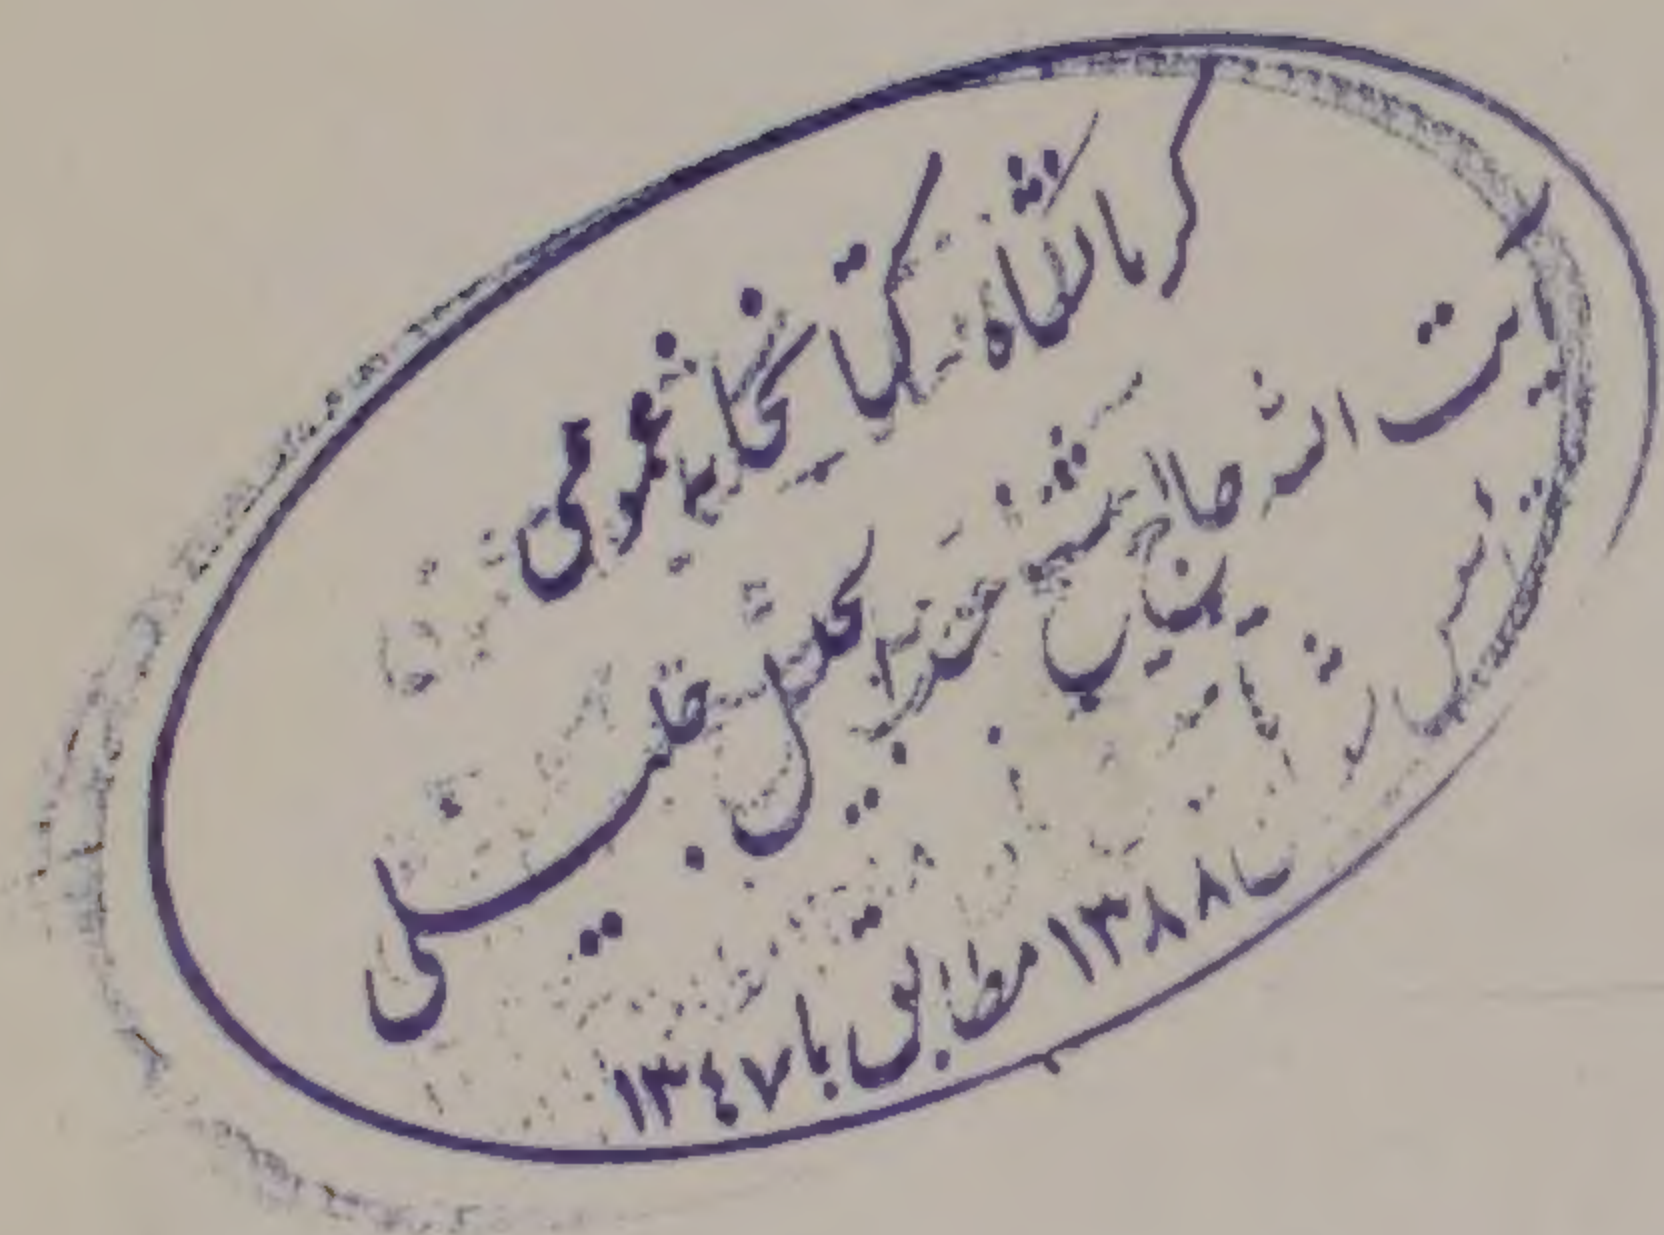 کرمانشاه کتابخانه عمومی
آیت الله حاج شیخ عبدالجلیل جلیلی
تأسیس
۱۳۸۸ مطابق با ۱۳٤۷